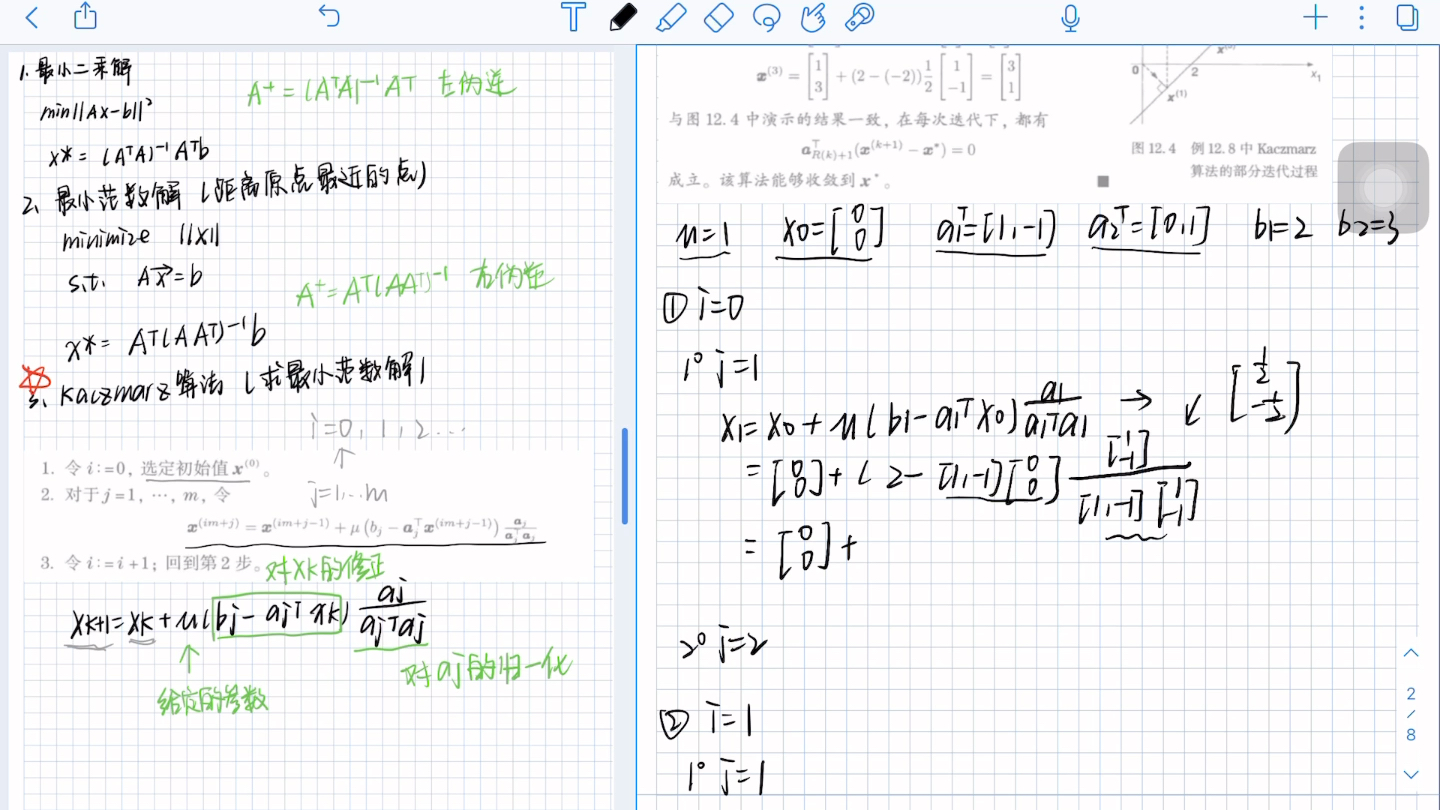 1.最小二乘解
A⁺=(AᵀA)⁻¹Aᵀ 左伪逆
min||Ax-b||²
x*=(AᵀA)⁻¹Aᵀb
2、最小范数解(距离原点最近的点)
minimize ||x||
s.t. Ax=b
A⁺=Aᵀ(AAᵀ)⁻¹ 右伪逆
x*=Aᵀ(AAᵀ)⁻¹b
3、kaczmarz算法(求最小范数解)
i=0,1,2...
↑
1. 令 i:=0, 选定初始值 x⁽⁰⁾。
j=1,...m
2. 对于 j=1, ⋯, m, 令
x^(im+j) = x^(im+j-1) + μ(b_j - a_j^T x^(im+j-1)) a_j / a_j^T a_j
3. 令 i:=i+1; 回到第 2 步。
对xk的修正
xk+1=xk+u(bj-ajᵀxk) aj/ajᵀaj
↑
对aj的归一化
给定的参数
x⁽³⁾ = [1 3] + (2-(-2)) 1/2 [1 -1] = [3 1]
0 2 x₁
x⁽¹⁾
与图 12.4 中演示的结果一致, 在每次迭代下, 都有
a^T_{R(k)+1}(x^(k+1) - x*) = 0
成立。该算法能够收敛到 x*。 ■
图 12.4 例 12.8 中 Kaczmarz
算法的部分迭代过程
u=1 x0=[0 0] a1ᵀ=[1,-1] a2ᵀ=[0,1] b1=2 b2=3
① i=0
1° j=1
x1=x0+u(b1-a1ᵀx0) a1/a1ᵀa1 → ↙ [1/2 -1/2]
=[0 0]+(2-[1,-1][0 0]) [1 -1]/[1,-1][1 -1]
=[0 0]+
2° j=2
② i=1
1° j=1
2
/
8